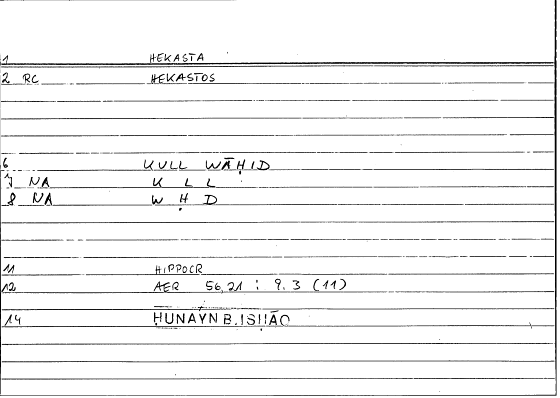 1 HEKASTA
2 RC HEKASTOS
6 KULL WĀḤID
7 NA K L L
8 NA W Ḥ D
11 HIPPOCR
12 AER 56,21 : 9.3 (11)
14 ḤUNAYN B.ISḤĀQ